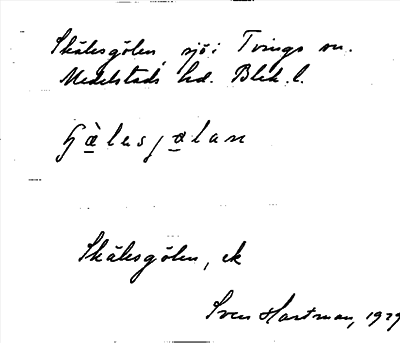 Skälesgölen, sjö i Tvings sn.
Medelstads hd. Blek. l.
Skälesgölen, ek
Sven Hartman, 1929